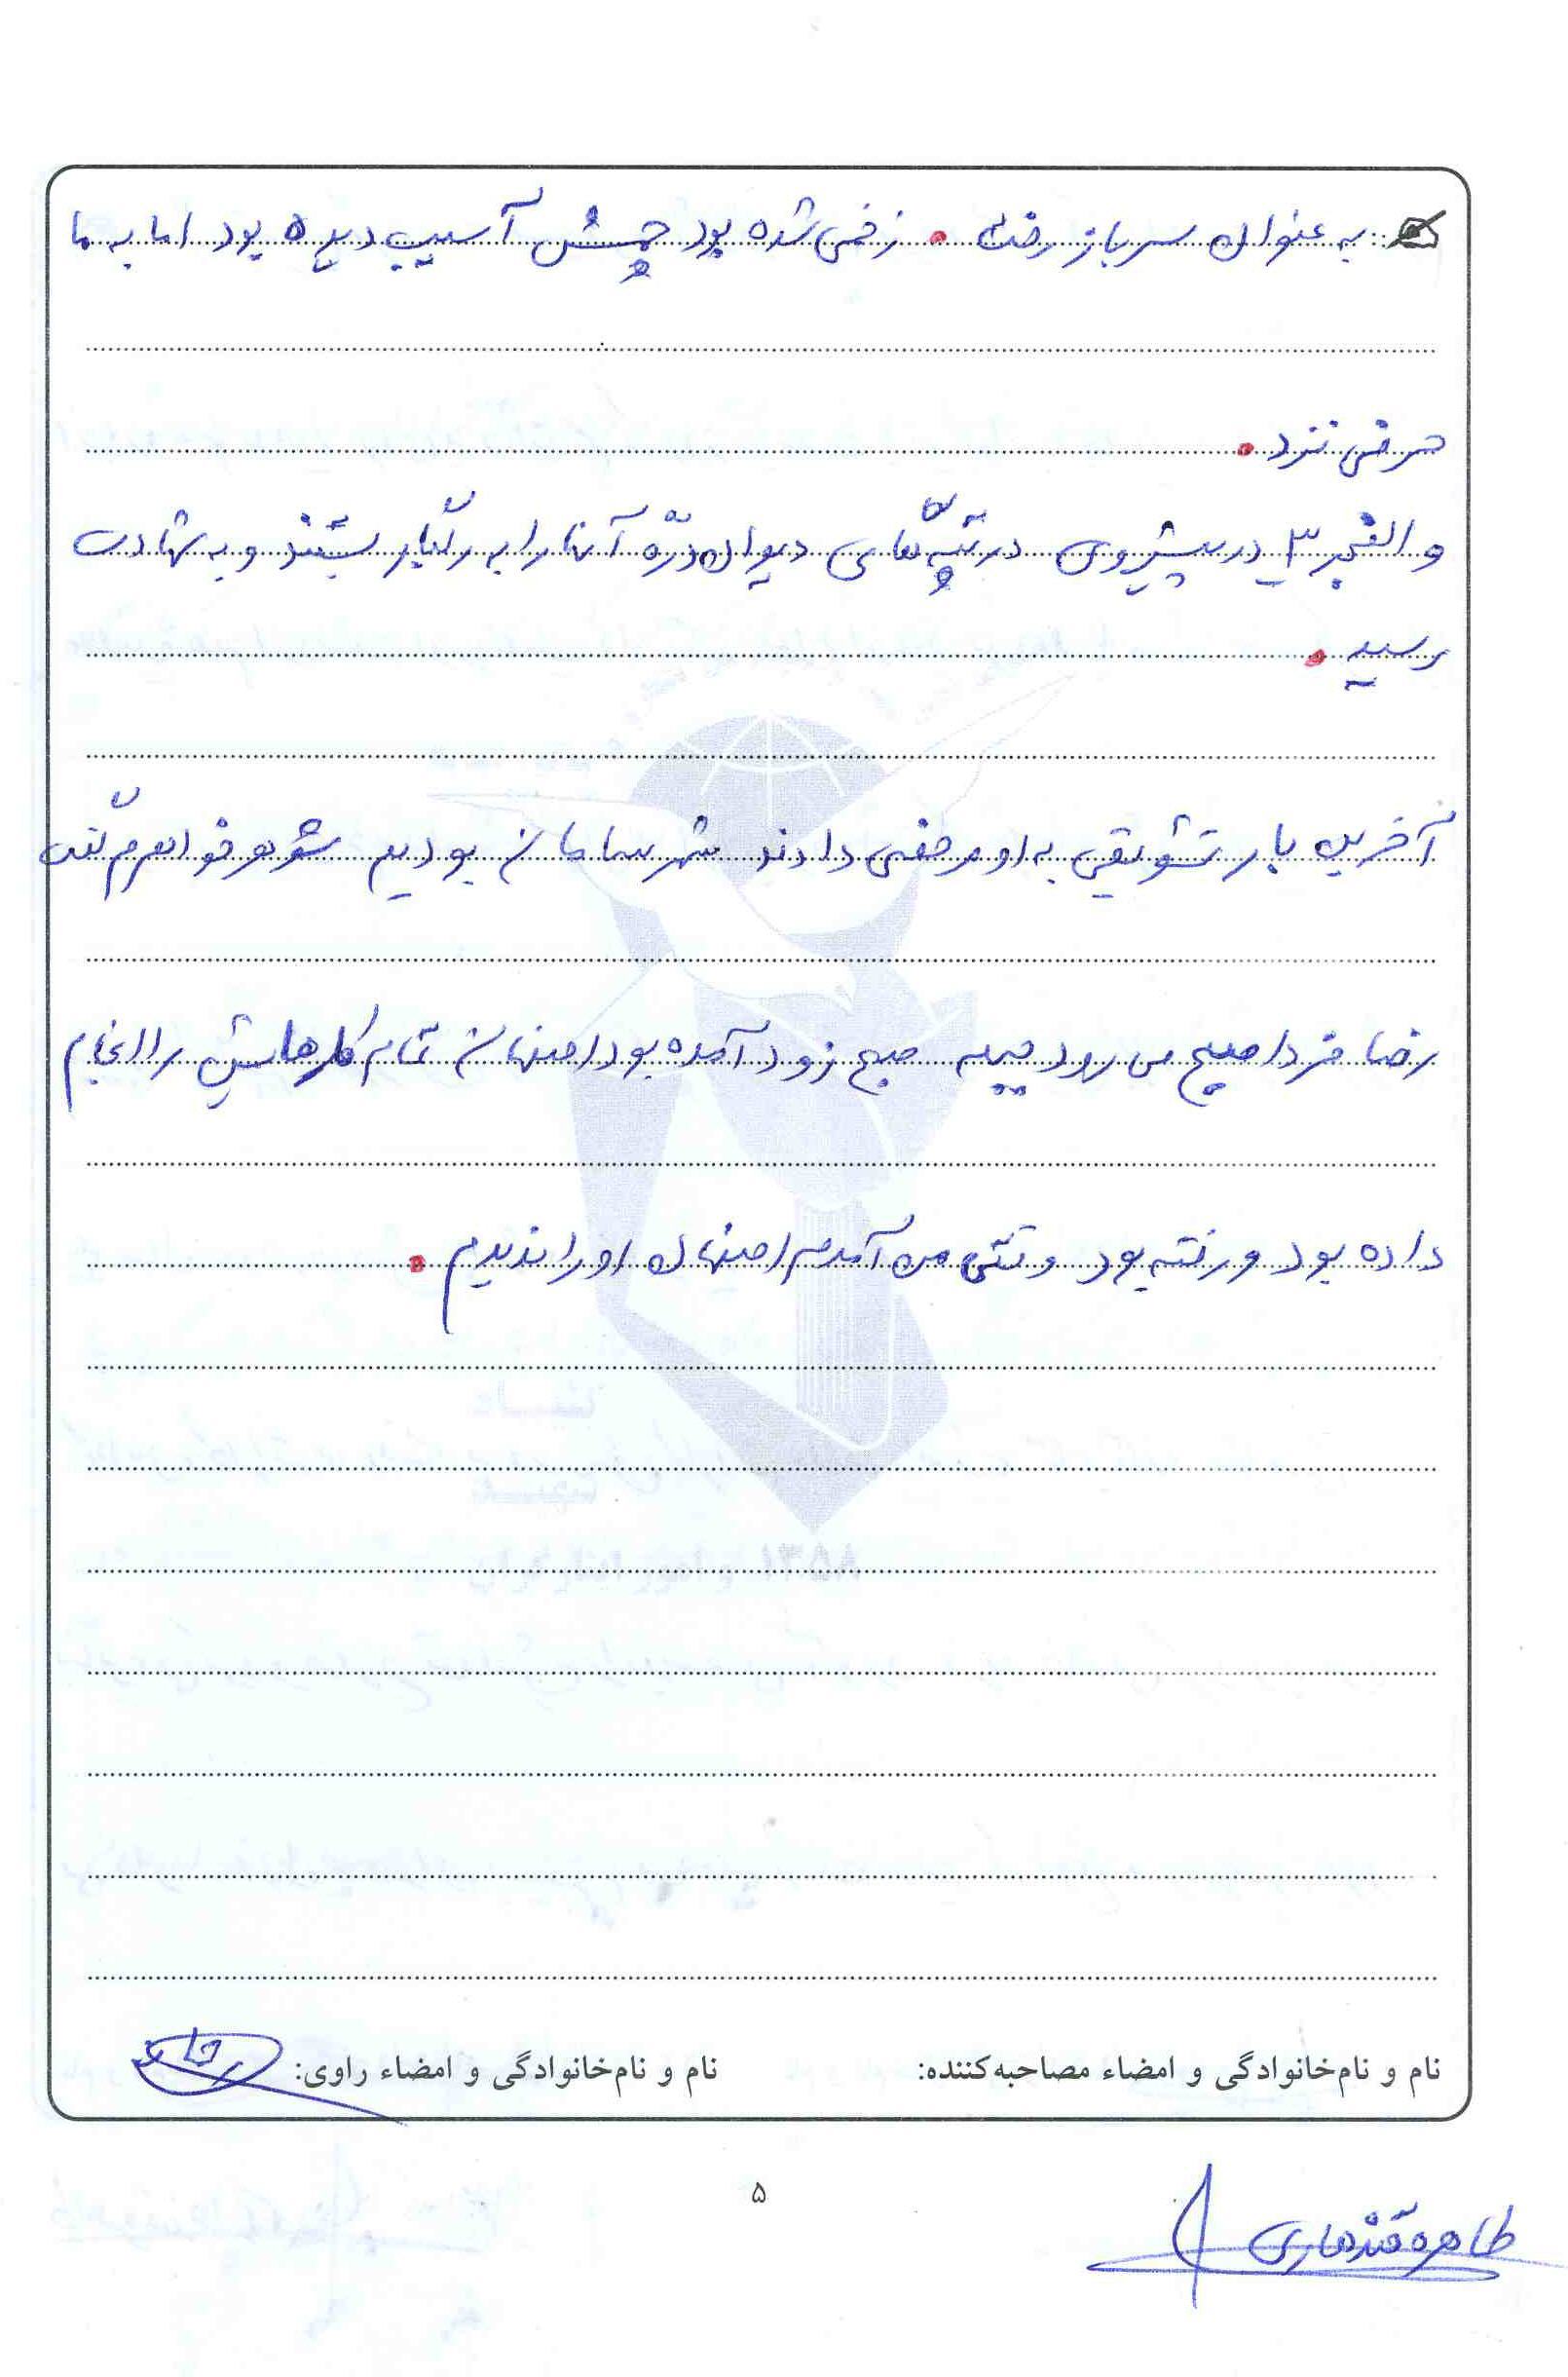 به عنوان سرباز رفت . زخمی شده بود چشمش آسیب دیده بود اما به ما
حرفی نزد .
والفجر ۳ در پیشروی در تپّه‌های دیوان درّه آنها را به رگبار بستند و به شهادت
رسید .
آخرین بار تشویقی به او مرخصی دادند شهر سامان بودیم شوهر خواهرم گفت
رضا فردا صبح می رود جبهه صبح زود آمده بود اصفهان تمام کارهایش را انجام
داده بود و رفته بود وقتی من آمدم اصفهان او را ندیدم .
۱۳۵۸ و امور ایثارگران
نام و نام‌خانوادگی و امضاء مصاحبه‌کننده:
نام و نام‌خانوادگی و امضاء راوی:
۵
طاهره قندهاری